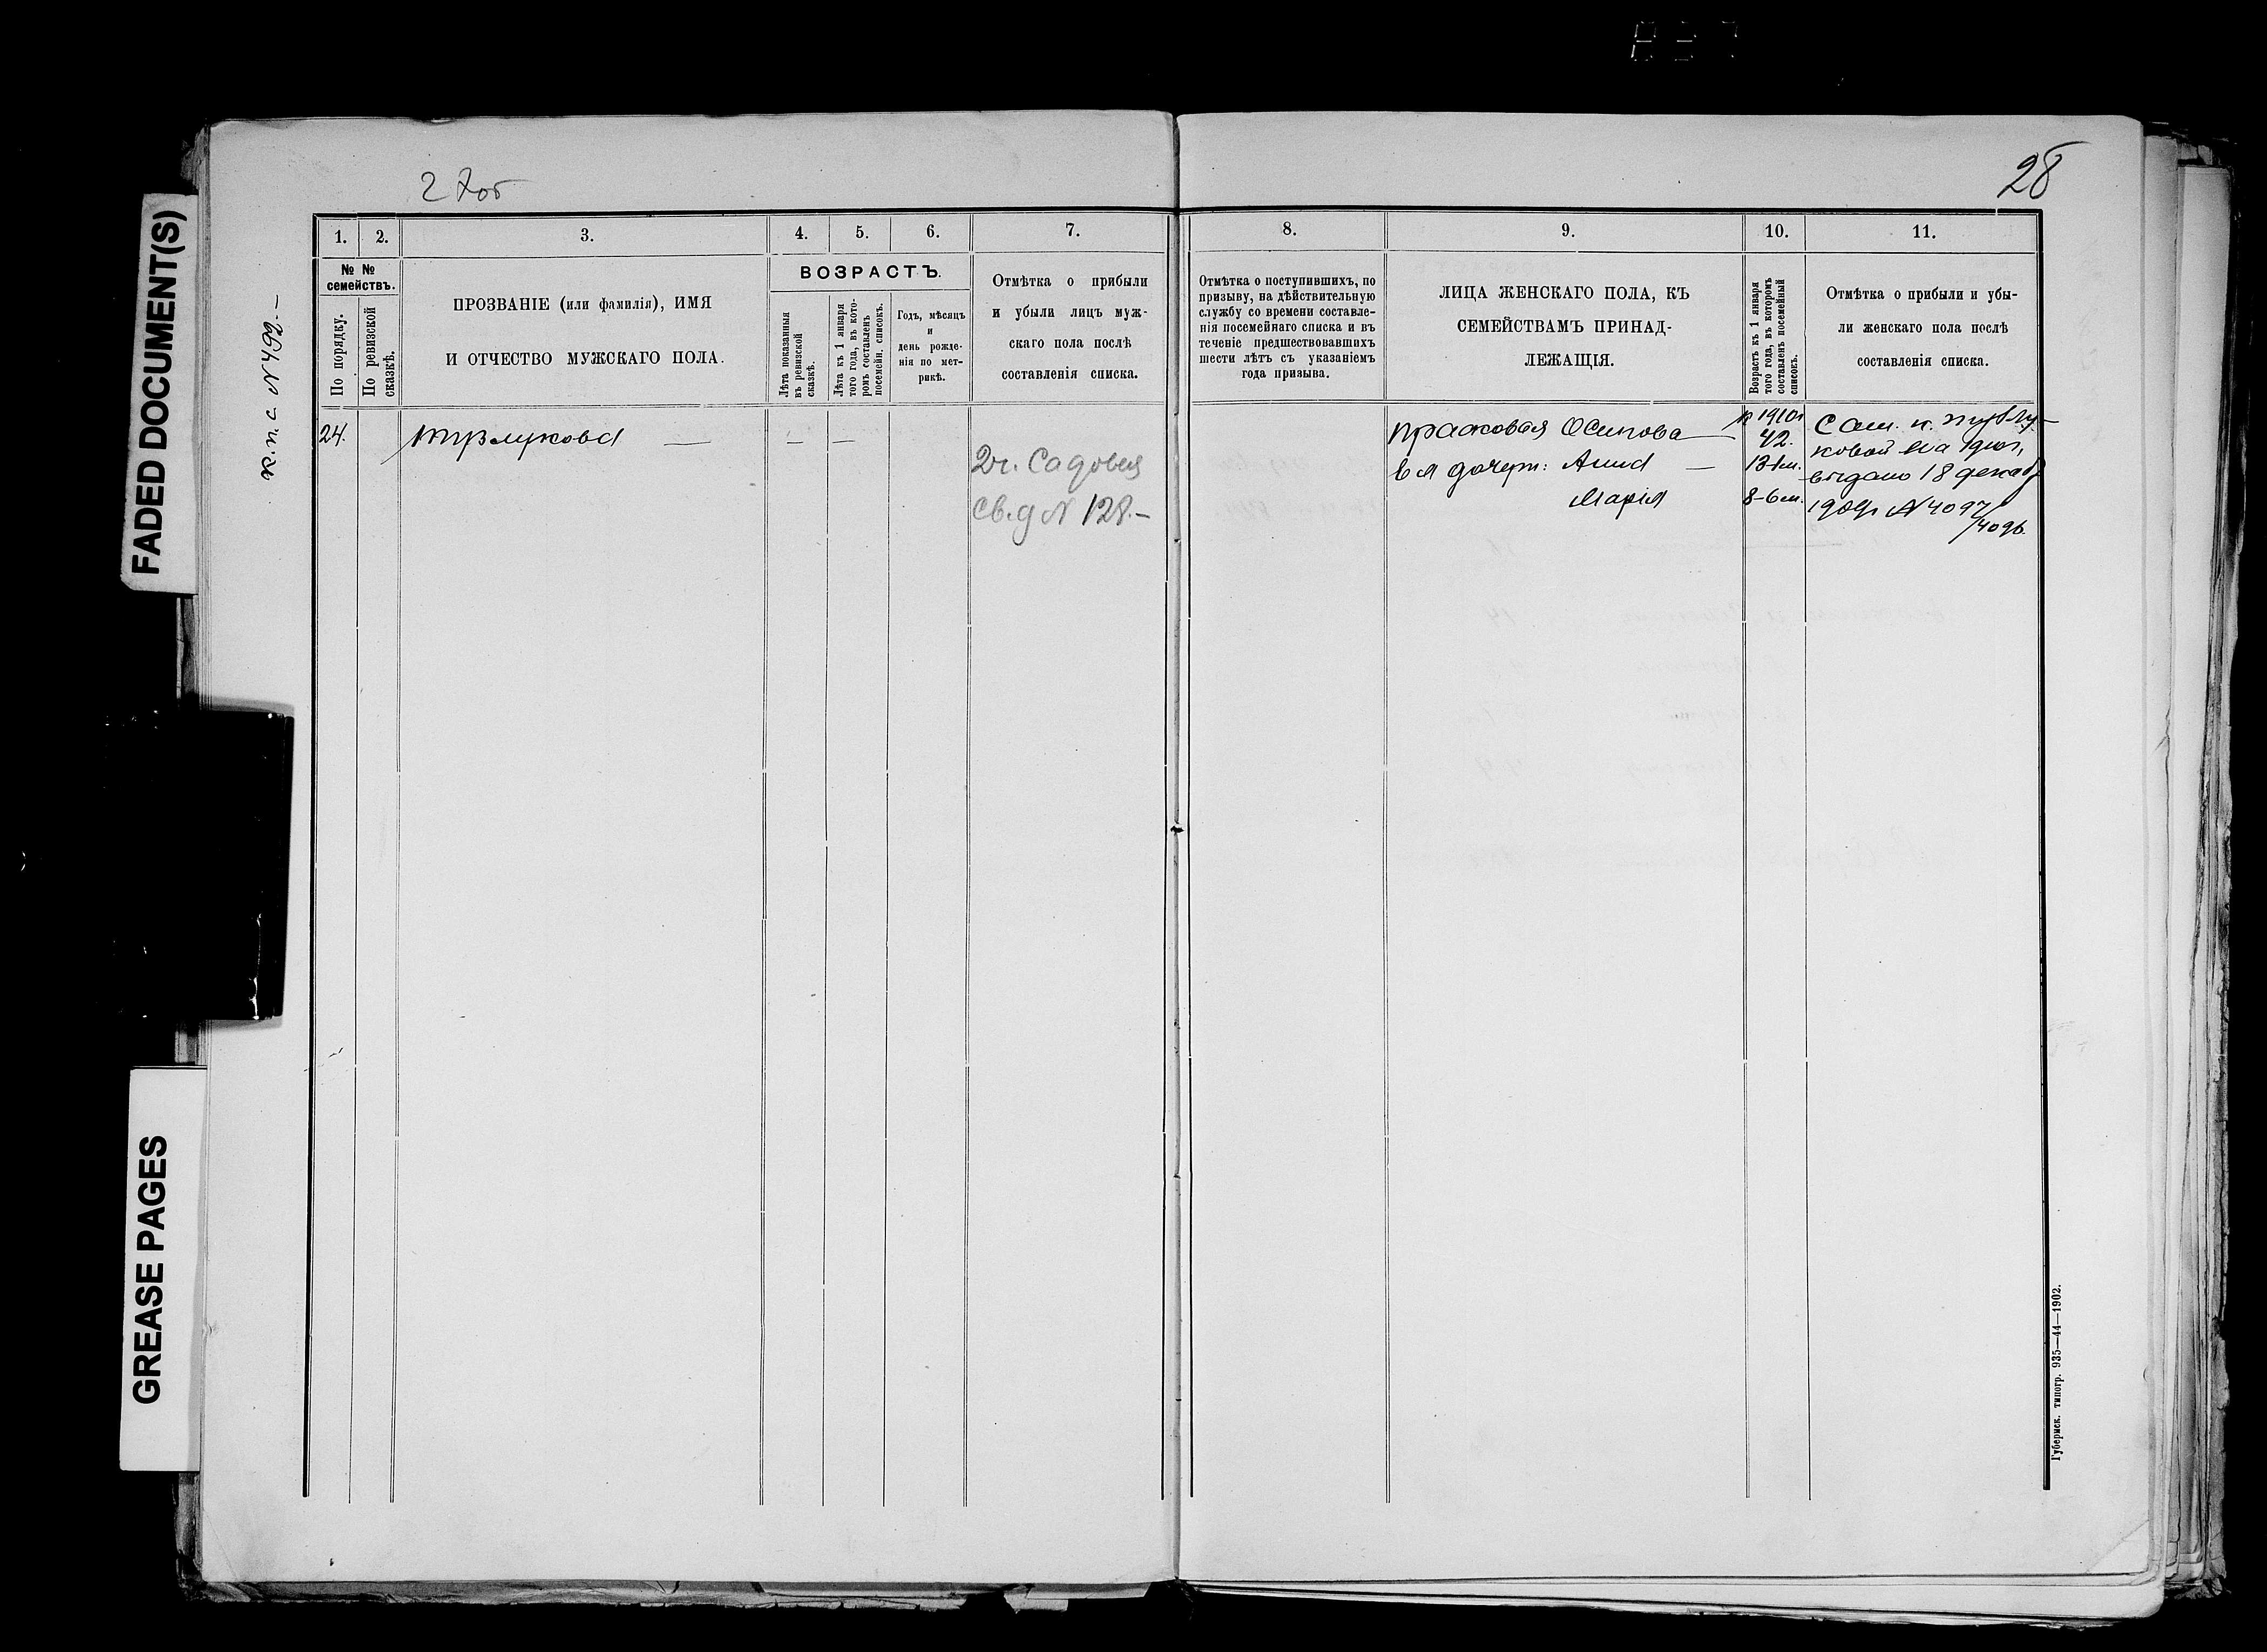 FADED DOCUMENT(S)
GREASE PAGES
к. п. с. N 499.—
28
1.
2.
3.
4.
5.
6.
7.
№ №
семействъ.
По порядку.
По ревизской
сказкѣ.
ПРОЗВАНІЕ (или фамилія), ИМЯ
И ОТЧЕСТВО МУЖСКАГО ПОЛА.
ВОЗРАСТЪ.
Лѣта показанныя
въ ревизской
сказкѣ.
Лѣта къ 1 января
того года, въ кото-
ромъ составленъ
посемейн. списокъ.
Годъ, мѣсяцъ
и
день рожде-
нія по мет-
рикѣ.
Отмѣтка о прибыли
и убыли лицъ муж-
скаго пола послѣ
составленія списка.
24.
— — —
2ч. Садовая
Св. д N 128.—
8.
9.
10.
11.
Отмѣтка о поступившихъ, по
призыву, на дѣйствительную
службу со времени составле-
нія посемейнаго списка и въ
теченіе предшествовавшихъ
шести лѣтъ съ указаніемъ
года призыва.
ЛИЦА ЖЕНСКАГО ПОЛА, КЪ
СЕМЕЙСТВАМЪ ПРИНАД-
ЛЕЖАЩІЯ.
Возрастъ къ 1 января
того года, въ которомъ
составленъ посемейный
списокъ.
Отмѣтка о прибыли и убы-
ли женскаго пола послѣ
составленія списка.
Прасковья Осипова —
к 1910г
42.
ея дочери: Анна —
13-1м.
Марія
8-6м.
ковой на 1910г,
выдано 18 декаб
1909г N 4097/
/4096.
Губернск. типогр. 935—44—1902.